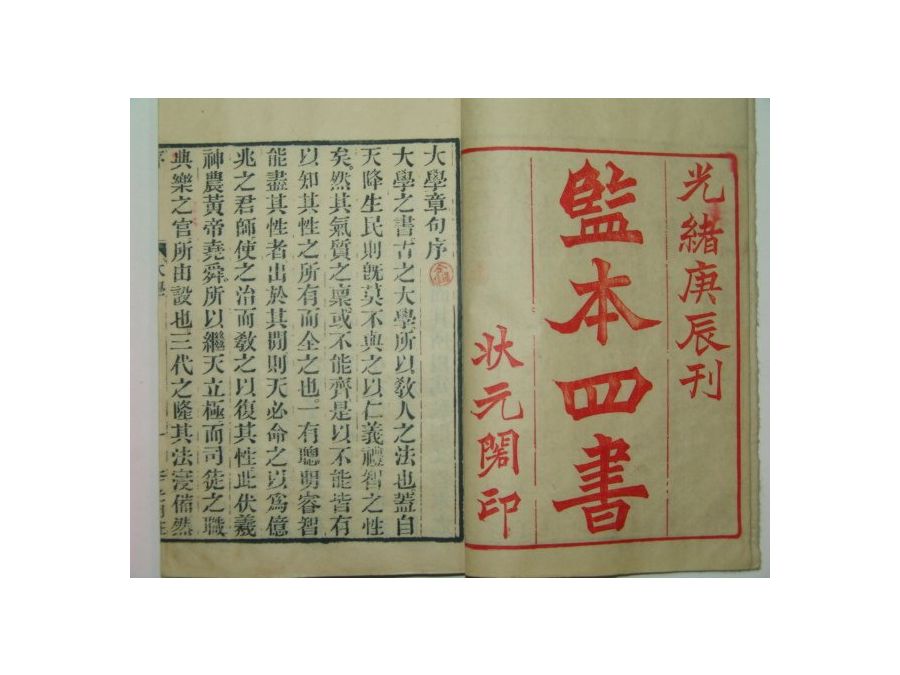 光緒庚辰刊
監本四書
状元閣印
大學章句序
大學之書古之大學所以敎人之法也蓋自
天降生民則旣莫不與之以仁義禮智之性
矣。然其氣質之稟或不能齊是以不能皆有
以知其性之所有而全之也。一有聰明睿智
能盡其性者出於其閒則天必命之以爲億
兆之君師使之治而敎之以復其性此伏羲
神農黃帝堯舜。所以繼天立極而司徒之職
典樂之官所由設也三代之隆其法寖備然